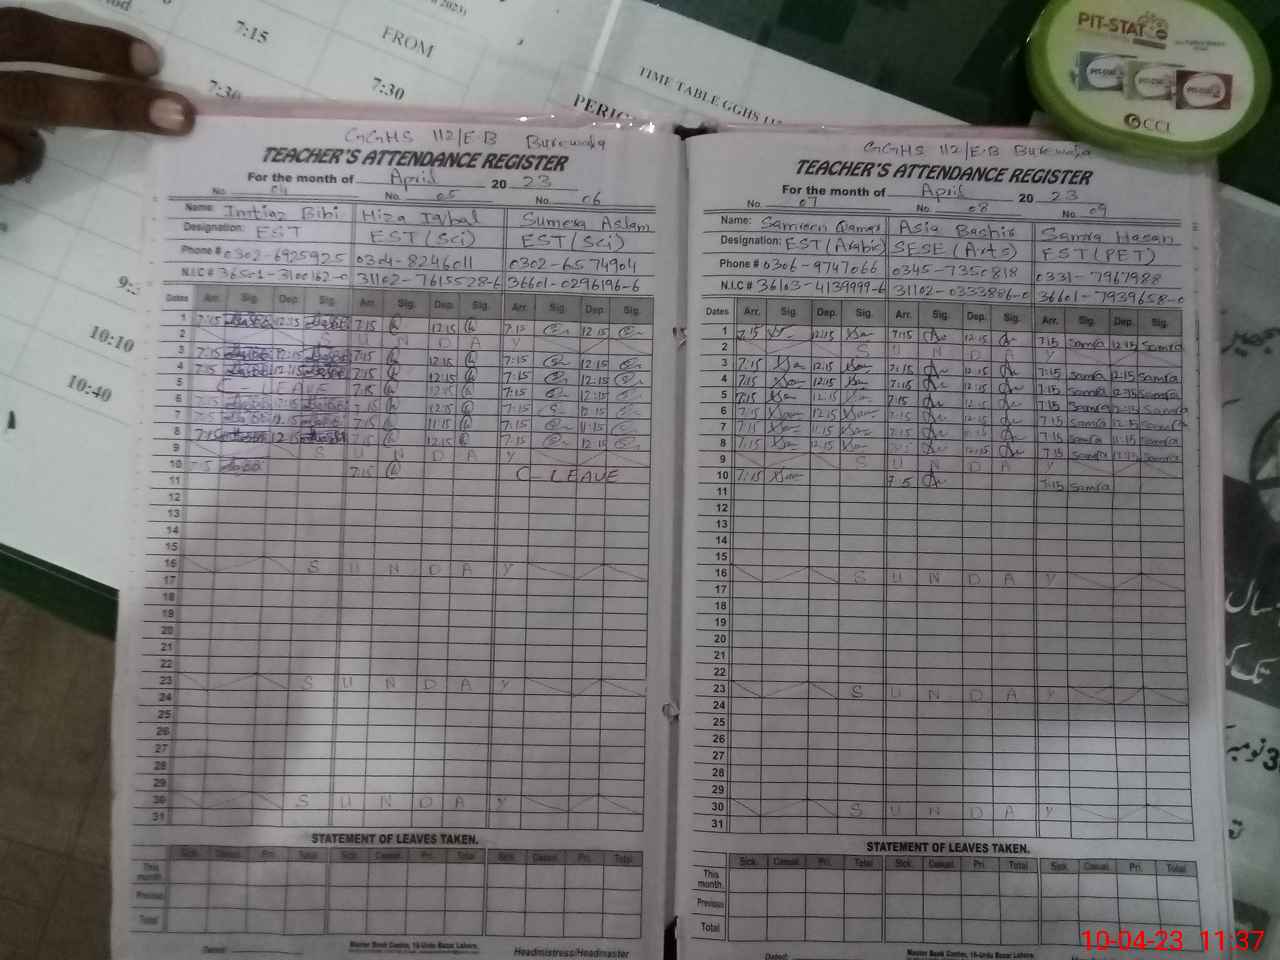 7:15
FROM
7:30
7:30
TIME TABLE GGHS 11
PERIO
10:10
10:40
PIT-STAT
CCL
GGHS 112/E.B Burewala
TEACHER'S ATTENDANCE REGISTER
For the month of April 20 23
No. 04 No. 05 No. 06
Name: Imtiaz Bibi Hiza Iqbal Sumera Aslam
Designation: EST EST (Sci) EST (Sci)
Phone # 0302-6925925 0304-8246011 0302-6574904
N.I.C # 36501-3100162-0 31102-7615528-6 36601-0296196-6
Dates Arr. Sig. Dep. Sig. Arr. Sig. Dep. Sig. Arr. Sig. Dep. Sig.
1 7:15 12:15 7:15 12:15 7:15 12:15
2 S U N D A Y
3 7:15 12:15 7:15 12:15 7:15 12:15
4 7:15 12:15 7:15 12:15 7:15 12:15
5 C-LEAVE 7:15 12:15 7:15 12:15
6 7:15 12:15 7:15 12:15 7:15 12:15
7 7:15 7:15 11:15 7:15 11:15
8 7:15 12:15 7:15 12:15 7:15 12:15
9 S U N D A Y
10 7:15 7:15 C-LEAVE
11
12
13
14
15
16 S U N D A Y
17
18
19
20
21
22
23 S U N D A Y
24
25
26
27
28
29
30 S U N D A Y
31
STATEMENT OF LEAVES TAKEN.
Sick. Casual. Pri. Total Sick. Casual. Pri. Total Sick. Casual. Pri. Total
This month.
Previous
Total
Dated:
Master Book Centre, 16-Urdu Bazar Lahore.
Headmistress/Headmaster
GGHS 112/E.B Burewala
TEACHER'S ATTENDANCE REGISTER
For the month of April 20 23
No. 07 No. 08 No. 09
Name: Samreen Qamar Asia Bashir Samra Hasan
Designation: EST (Arabic) SESE (Arts) EST (PET)
Phone # 0306-9747066 0345-7350818 0331-7967988
N.I.C # 36103-4139999-6 31102-0333886-0 36601-7939658-0
Dates Arr. Sig. Dep. Sig. Arr. Sig. Dep. Sig. Arr. Sig. Dep. Sig.
1 7:15 12:15 7:15 12:15 7:15 Samra 12:15 Samra
2 S U N D A Y
3 7:15 12:15 7:15 12:15 7:15 Samra 12:15 Samra
4 7:15 12:15 7:15 12:15 7:15 Samra 12:15 Samra
5 7:15 12:15 7:15 12:15 7:15 Samra 12:15 Samra
6 7:15 12:15 7:15 12:15 7:15 Samra 12:15 Samra
7 7:15 11:15 7:15 11:15 7:15 Samra 11:15 Samra
8 7:15 12:15 7:15 12:15 7:15 Samra 12:15 Samra
9 S U N D A Y
10 7:15 7:15 7:15 Samra
11
12
13
14
15
16 S U N D A Y
17
18
19
20
21
22
23 S U N D A Y
24
25
26
27
28
29
30 S U N D A Y
31
STATEMENT OF LEAVES TAKEN.
Sick. Casual. Pri. Total Sick. Casual. Pri. Total Sick. Casual. Pri. Total
This month.
Previous
Total
Dated:
Master Book Centre, 16-Urdu Bazar Lahore.
Headmistress/Headmaster
10-04-23 11:37